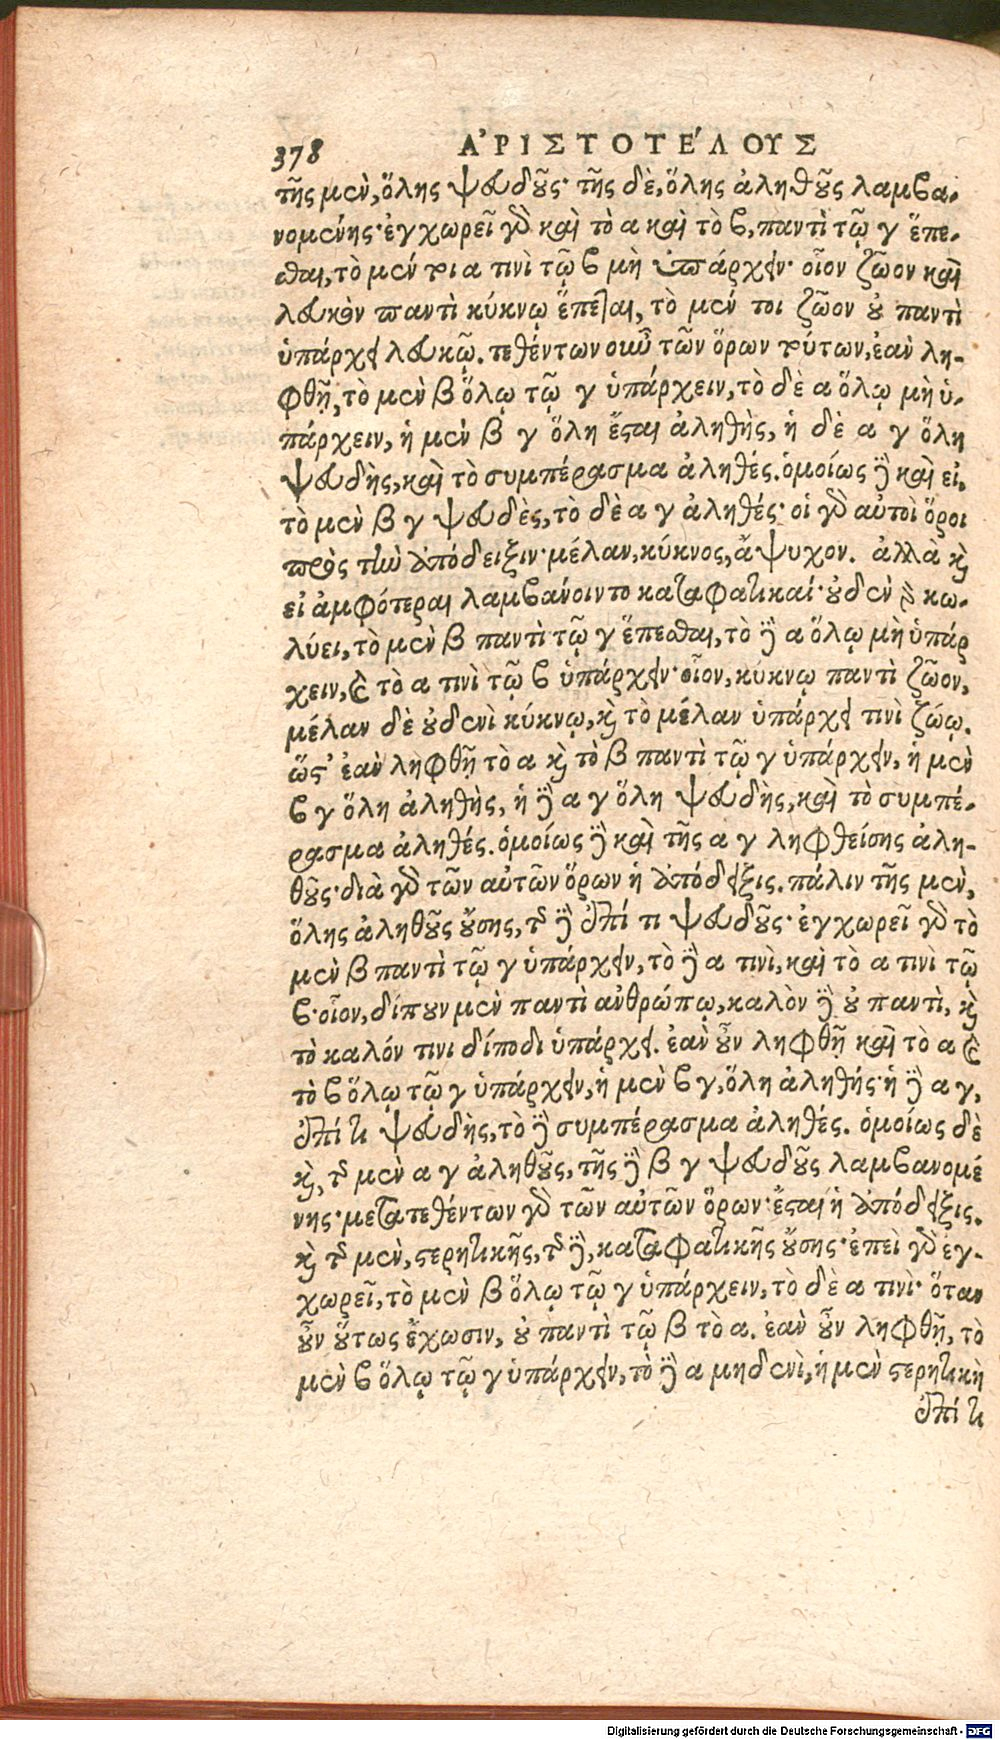 378 ἈΡΙΣΤΟΤΈΛΟΥΣ
τῆς μὲν, ὅλης ψευδοῦς· τῆς δὲ, ὅλης ἀληθοῦς λαμβα-
νομένης· ἐγχωρεῖ γὰρ καὶ τὸ α καὶ τὸ β, παντὶ τῷ γ ἕπε-
σθαι, τὸ μέν τοι α τινὶ τῷ β μὴ ὑπάρχειν· οἷον ζῶον καὶ
λευκὸν παντὶ κύκνῳ ἕπεται, τὸ μέν τοι ζῶον οὐ παντὶ
ὑπάρχει λευκῷ. τεθέντων οὖν τῶν ὅρων τούτων, ἐὰν λη-
φθῇ, τὸ μὲν β ὅλῳ τῷ γ ὑπάρχειν, τὸ δὲ α ὅλῳ μὴ ὑ-
πάρχειν, ἡ μὲν β γ ὅλη ἔσται ἀληθὴς, ἡ δὲ α γ ὅλη
ψευδὴς, καὶ τὸ συμπέρασμα ἀληθές. ὁμοίως δὲ καὶ εἰ,
τὸ μὲν β γ ψευδὲς, τὸ δὲ α γ ἀληθές· οἱ γὰρ αὐτοὶ ὅροι
πρὸς τὴν ἀπόδειξιν· μέλαν, κύκνος, ἄψυχον. ἀλλὰ καὶ
εἰ ἀμφότεραι λαμβάνοιντο καταφατικαί· οὐδὲν γὰρ κω-
λύει, τὸ μὲν β παντὶ τῷ γ ἕπεσθαι, τὸ δὲ α ὅλῳ μὴ ὑπάρ
χειν, καὶ τὸ α τινὶ τῷ β ὑπάρχειν· οἷον, κύκνῳ παντὶ ζῶον,
μέλαν δὲ οὐδενὶ κύκνῳ, καὶ τὸ μέλαν ὑπάρχει τινὶ ζώῳ.
ὥστ' ἐὰν ληφθῇ τὸ α καὶ τὸ β παντὶ τῷ γ ὑπάρχειν, ἡ μὲν
β γ ὅλη ἀληθὴς, ἡ δὲ α γ ὅλη ψευδὴς, καὶ τὸ συμπέ-
ρασμα ἀληθές. ὁμοίως δὲ καὶ τῆς α γ ληφθείσης ἀλη-
θοῦς· διὰ γὰρ τῶν αὐτῶν ὅρων ἡ ἀπόδειξις. πάλιν τῆς μὲν,
ὅλης ἀληθοῦς οὔσης, τῆς δὲ ἐπί τι ψευδοῦς· ἐγχωρεῖ γὰρ τὸ
μὲν β παντὶ τῷ γ ὑπάρχειν, τὸ δὲ α τινὶ, καὶ τὸ α τινὶ τῷ
β· οἷον, δίπουν μὲν παντὶ ἀνθρώπῳ, καλὸν δὲ οὐ παντὶ, καὶ
τὸ καλόν τινι δίποδι ὑπάρχει. ἐὰν οὖν ληφθῇ καὶ τὸ α καὶ
τὸ β ὅλῳ τῷ γ ὑπάρχειν, ἡ μὲν β γ, ὅλη ἀληθής· ἡ δὲ α γ,
ἐπί τι ψευδὴς, τὸ δὲ συμπέρασμα ἀληθές. ὁμοίως δὲ
καὶ, τῆς μὲν α γ ἀληθοῦς, τῆς δὲ β γ ψευδοῦς λαμβανομέ
νης· μετατεθέντων γὰρ τῶν αὐτῶν ὅρων· ἔσται ἡ ἀπόδειξις.
καὶ τῆς μὲν, στερητικῆς, τῆς δὲ, καταφατικῆς οὔσης· ἐπεὶ γὰρ ἐγ-
χωρεῖ, τὸ μὲν β ὅλῳ τῷ γ ὑπάρχειν, τὸ δὲ α τινὶ· ὅταν
οὖν οὕτως ἔχωσιν, οὐ παντὶ τῷ β τὸ α. ἐὰν οὖν ληφθῇ, τὸ
μὲν β ὅλῳ τῷ γ ὑπάρχειν, τὸ δὲ α μηδενὶ, ἡ μὲν στερητικὴ
ἐπί τι
Digitalisierung gefördert durch die Deutsche Forschungsgemeinschaft - DFG